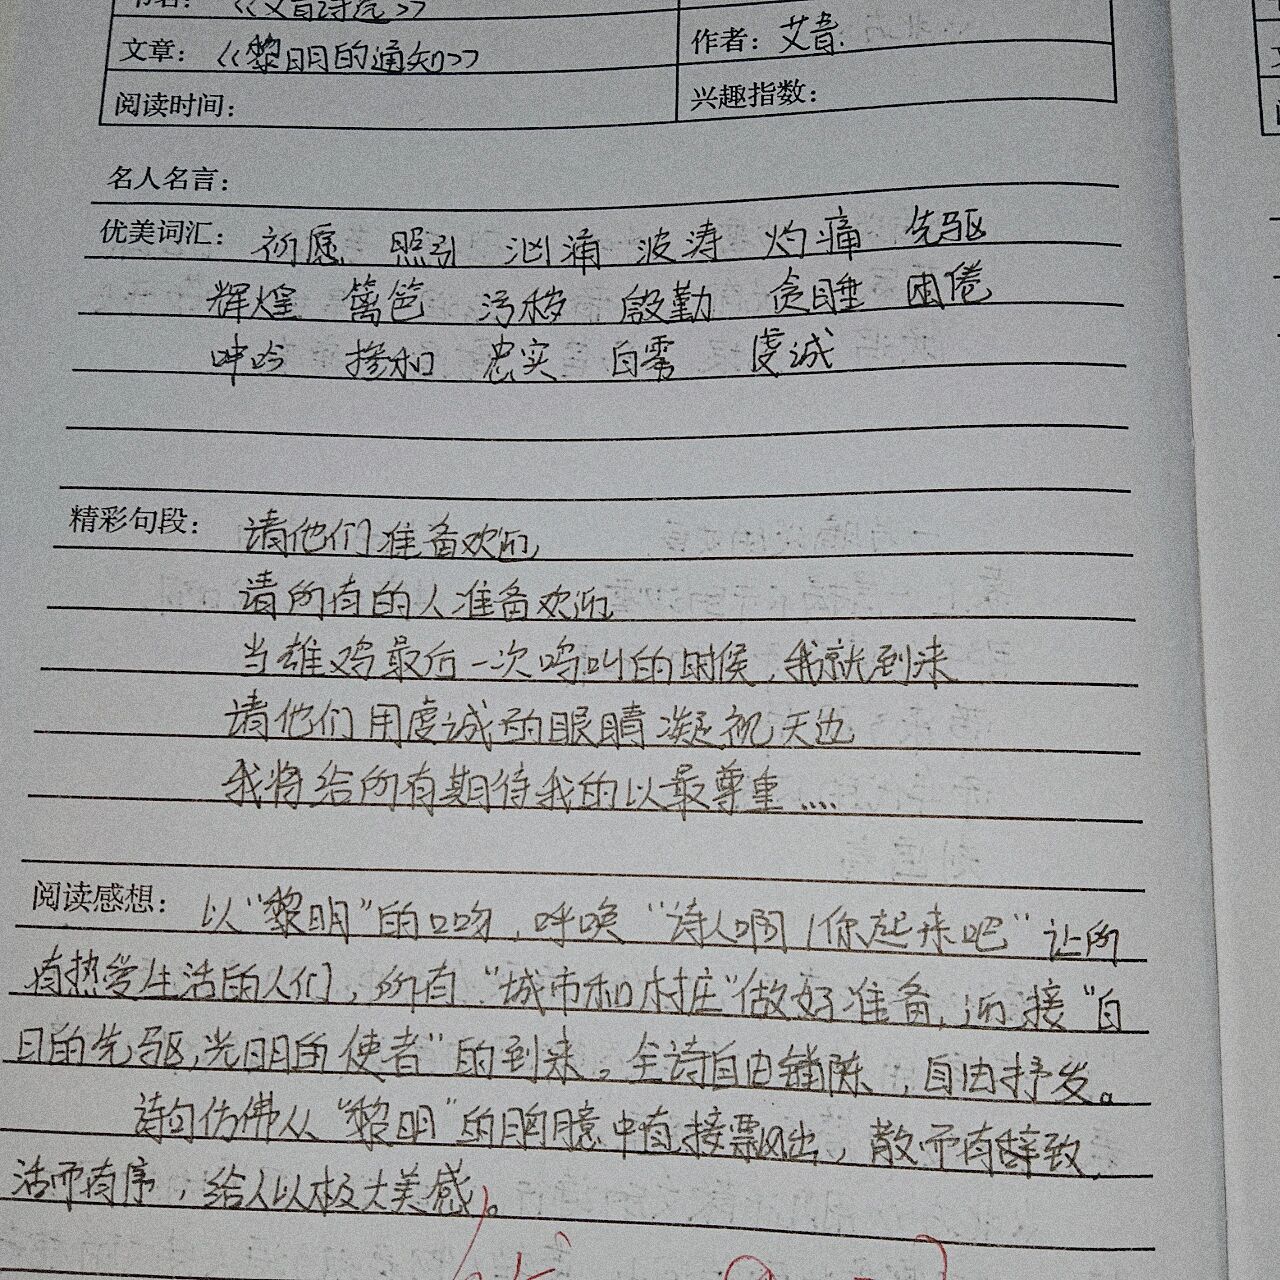 书名：《艾青诗选》
文章：《黎明的通知》
作者：艾青
阅读时间：
兴趣指数：
名人名言：
优美词汇：祈愿 照引 汹涌 波涛 灼痛 先驱
辉煌 篱笆 污秽 殷勤 贪睡 困倦
呻吟 掺和 忠实 白霉 虔诚
精彩句段：请他们准备欢迎
请所有的人准备欢迎
当雄鸡最后一次鸣叫的时候，我就到来
请他们用虔诚的眼睛凝视天边
我将给所有期待我的以最尊重....
阅读感想：以“黎明”的口吻，呼唤“诗人啊！你起来吧”让所
有热爱生活的人们，所有“城市和村庄”做好准备，迎接“白
日的先驱，光明的使者”的到来。全诗自由铺陈，自由抒发。
诗句仿佛从“黎明”的胸臆中直接飘出，散而有辞致，
活而有序，给人以极大美感。